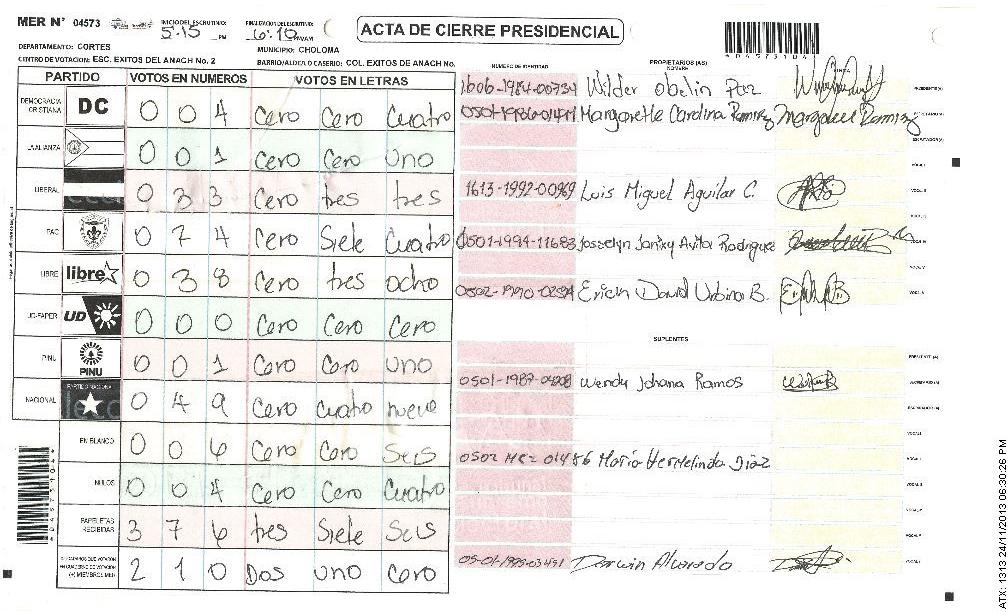 MER N° 04573
INICIO DEL ESCRUTINIO: 5:15 PM
FINALIZACION DEL ESCRUTINIO: 6:10 PM/AM
ACTA DE CIERRE PRESIDENCIAL
DEPARTAMENTO: CORTES
MUNICIPIO: CHOLOMA
CENTRO DE VOTACION: ESC. EXITOS DEL ANACH No. 2
BARRIO/ALDEA O CASERIO: COL. EXITOS DE ANACH No.
PARTIDO VOTOS EN NUMEROS VOTOS EN LETRAS
DEMOCRACIA CRISTIANA DC 0 0 4 Cero Cero Cuatro
LA ALIANZA 0 0 1 Cero Cero uno
LIBERAL 0 3 3 Cero tres tres
PAC 0 7 4 Cero Siete Cuatro
LIBRE libre 0 3 8 Cero tres ocho
UD-FAPER UD 0 0 0 Cero Cero Cero
PINU PINU 0 0 1 Cero Cero uno
NACIONAL PARTIDO NACIONAL 0 4 9 Cero cuatro nueve
EN BLANCO 0 0 6 Cero Cero Seis
NULOS 0 0 4 Cero Cero Cuatro
PAPELETAS RECIBIDAS 3 7 6 tres Siete Seis
2 1 0 Dos uno cero
NUMERO DE IDENTIDAD PROPIETARIOS (AS) NOMBRE FIRMA
1606-1984-00734 Wilder Obelin Paz PRESIDENTE(A)
Margarette Carolina Ramirez Margarette Ramirez SECRETARIO(A)
ESCRUTADOR(A)
VOCAL I
1613-1992-00969 Luis Miguel Aguilar C. VOCAL II
0501-1994-11683 Josselyn Avila Rodriguez
VOCAL V
Erick David Urbina B.
SUPLENTES
PRESIDENTE (A)
0501-1987- Wendy Johana Ramos SECRETARIO(A)
ESCRUTADOR(A)
VOCAL I
0502 01486 Maria Hermelinda Diaz
Darwin Alvarado
ATX: 1313 24/11/2013 06:30:26 PM